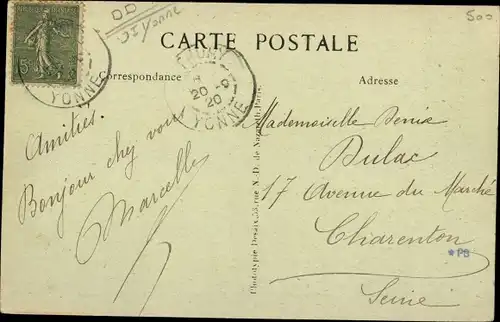 DD
Yonne
500
CARTE POSTALE
Correspondance
Adresse
15
YONNE
20
20
YONNE
Amitiés.
Bonjour chez vous
Marcelle
Mademoiselle Denise
Dulac
17 Avenue du Marché
Charenton
*PB
Seine
Phototypie Desaix, 53, rue N.-D. de Nazareth, Paris.